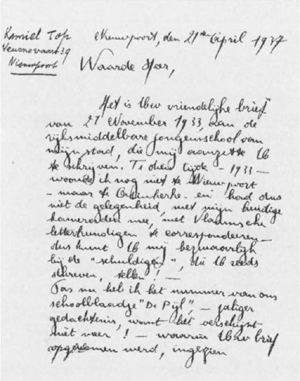 Kamiel Top
Veurnevaart 39
Nieuwpoort
Nieuwpoort, den 21ste April 1937
Waarde Heer,
Het is Uw vriendelijke brief
van 21 November 1933, aan de
rijksmiddelbare jongensschool van
mijn stad, die mij aanzette U
te schrijven. Te dien tijde - 1933 -
woonde ik nog niet te Nieuwpoort
- maar te - en had dus
niet de gelegenheid met mijn huidige
kameraden mee, met Vlaamsche
letterkundigen te corresponderen -
dus kunt U mij bezwaarlijk
bij de "schuldigen", die U reeds
schreven, tellen! -
Pas nu heb ik het nummer van ons
schoolblaadje "De Pijl", - zaliger
gedachtenis, want het verschijnt
niet meer! - waarin Uw brief
opgenomen werd, ingezien